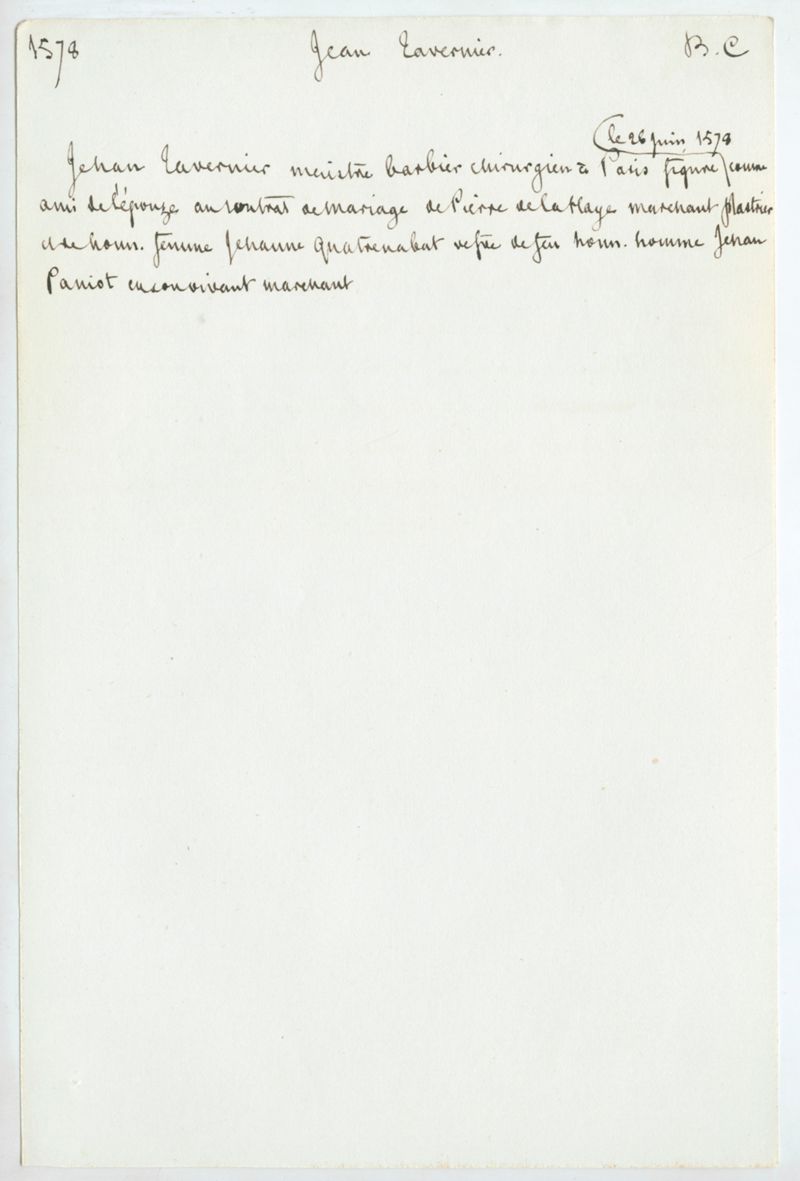 1578 Jean Tavernier. B. C
(le 26 juin 1578
Jehan Tavernier meistre barbier chirurgien à Paris figure) comme
ami de l'épouze au contrat de mariage de Pierre de la Haye marchant plastrier
et de honn. femme Jehanne Quatrenabat vefve de feu honn. homme Jehan
Paniot en son vivant marchant